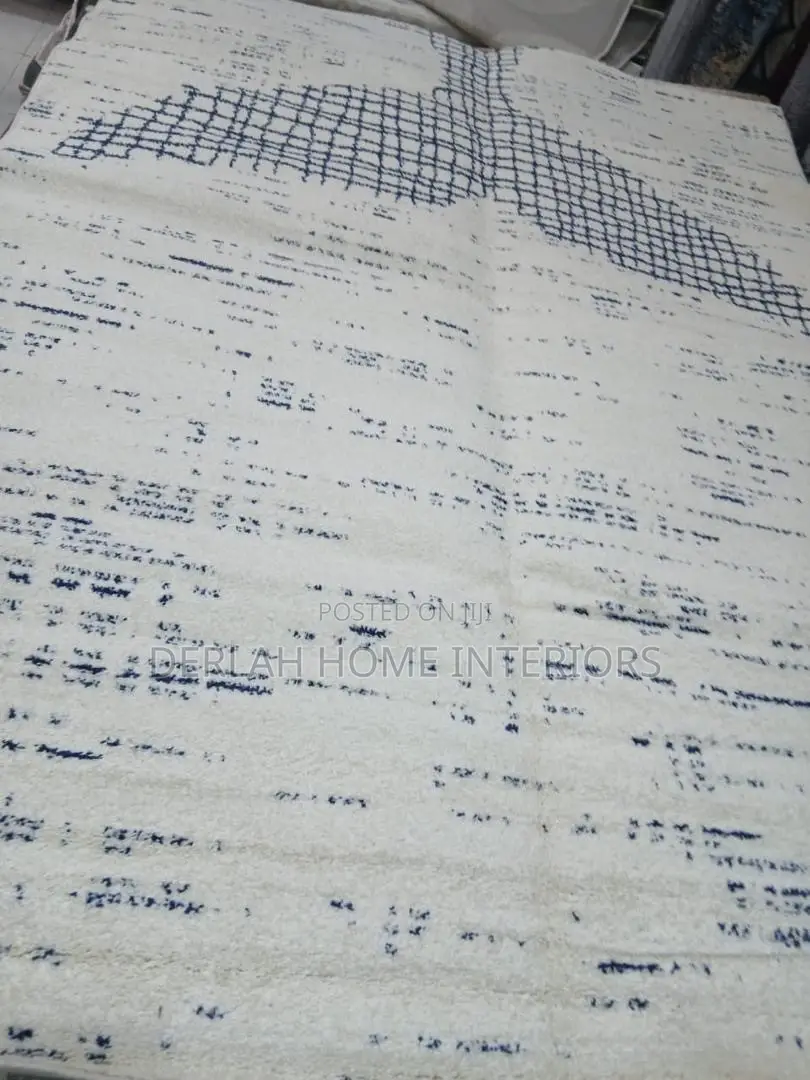 POSTED ON JIJI
DERLAH HOME INTERIORS